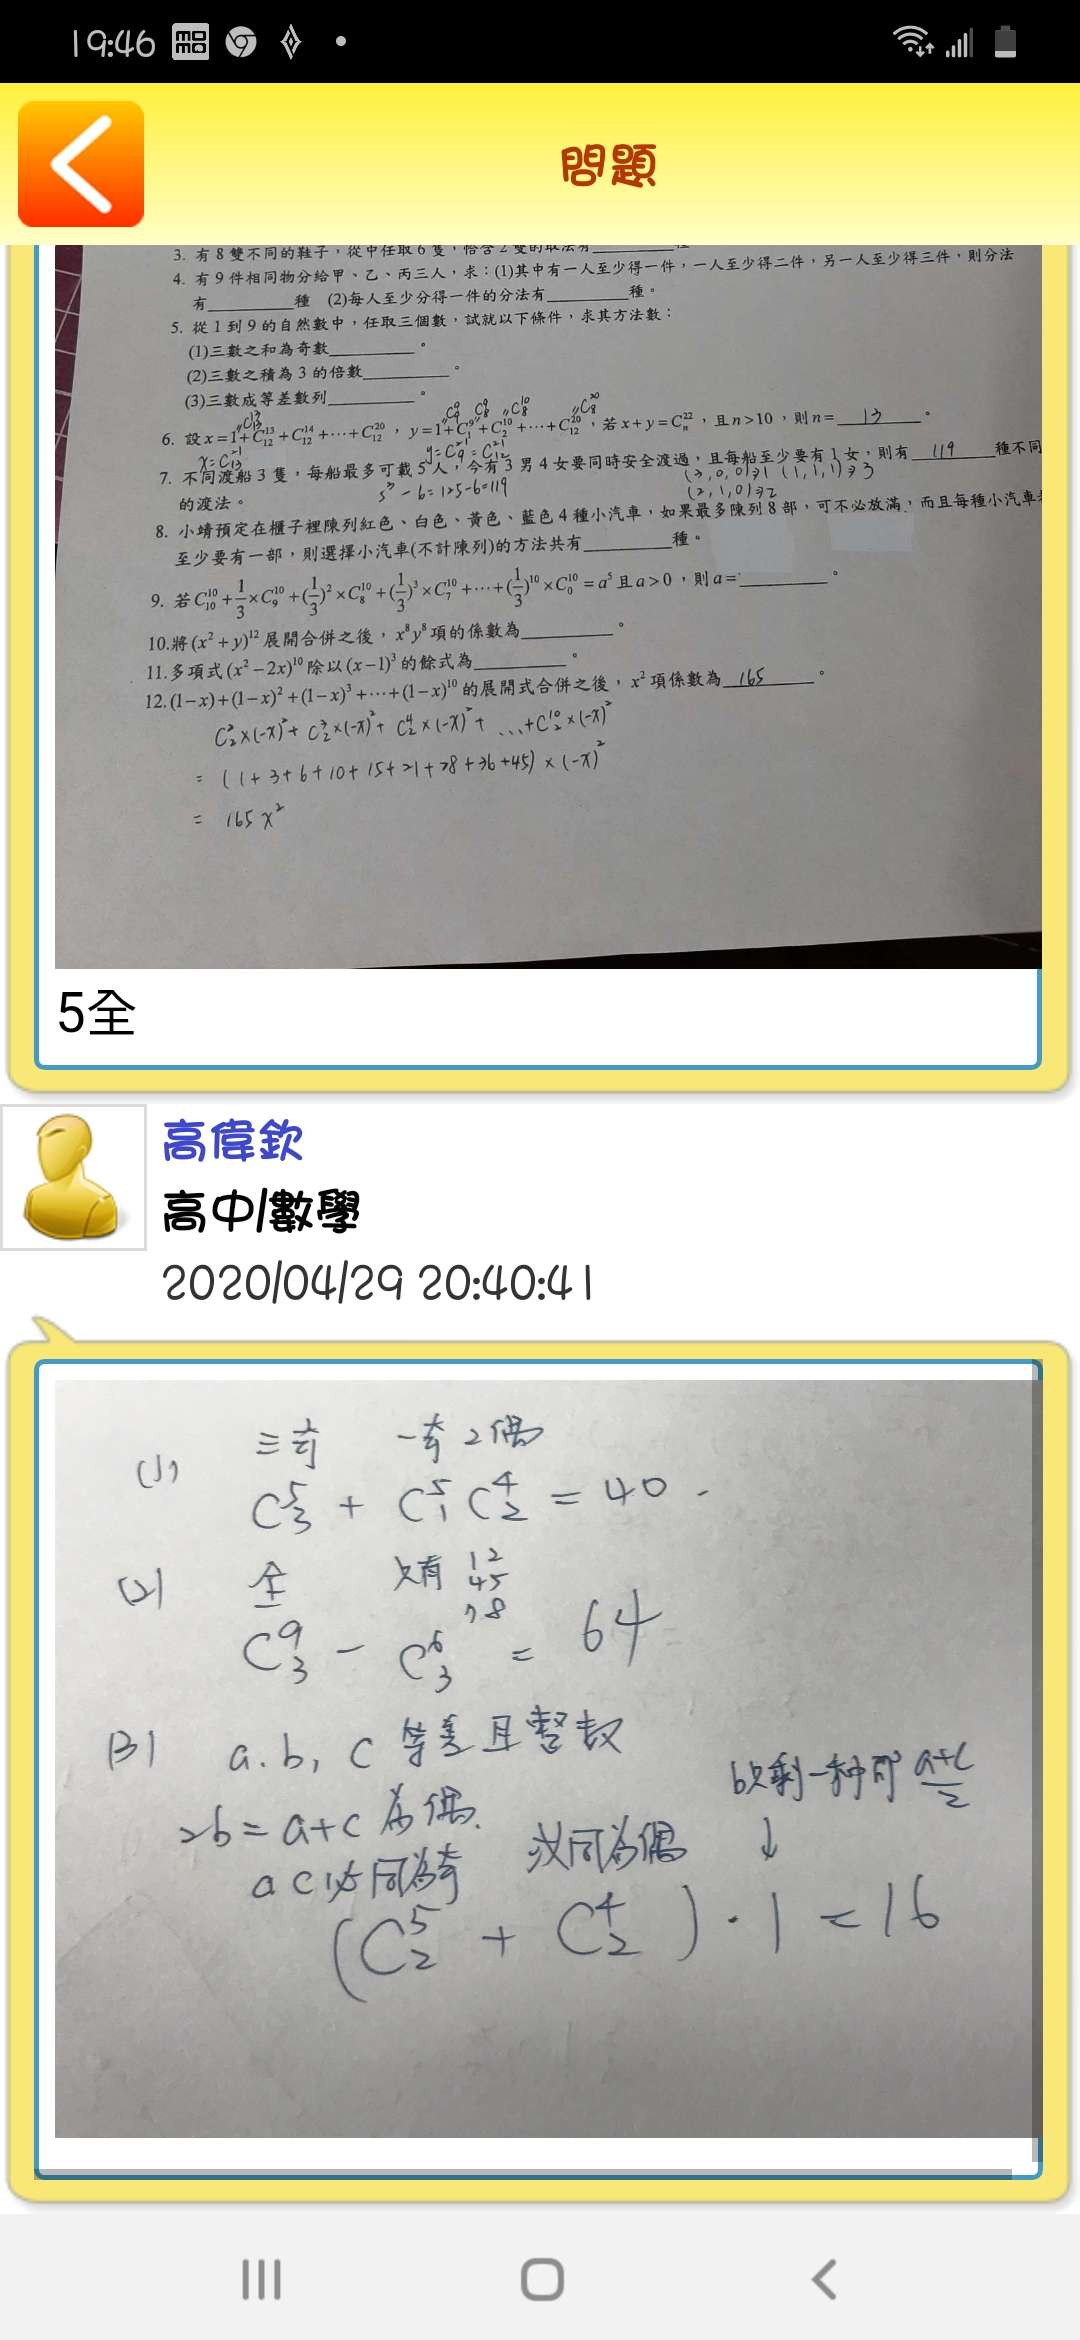 19:46
問題
3. 有 8 雙不同的鞋子，從中任取 6 隻，恰含 2 雙的取法有______種
4. 有 9 件相同物分給甲、乙、丙三人，求：(1)其中有一人至少得一件，一人至少得二件，另一人至少得三件，則分法
有______種 (2)每人至少分得一件的分法有______種。
5. 從 1 到 9 的自然數中，任取三個數，試就以下條件，求其方法數：
(1)三數之和為奇數______。
(2)三數之積為 3 的倍數______。
(3)三數成等差數列______。
6. 設 x=1+C¹³₁₂+C¹⁴₁₂+⋯+C²⁰₁₂，y=1+C⁹₁+C¹⁰₂+⋯+C²⁰₁₂，若 x+y=C²²ₙ，且 n>10，則 n= 13 。
x=C²¹₁₃ y=C²¹₉=C²¹₁₂
7. 不同渡船 3 隻，每船最多可載 5 人，今有 3 男 4 女要同時安全渡過，且每船至少要有 1 女，則有 119 種不同
的渡法。 5³-6=125-6=119 (3,0,0)⇒1 (1,1,1)⇒3
(2,1,0)⇒2
8. 小靖預定在櫃子裡陳列紅色、白色、黃色、藍色 4 種小汽車，如果最多陳列 8 部，可不必放滿，而且每種小汽車
至少要有一部，則選擇小汽車(不計陳列)的方法共有______種。
9. 若 C¹⁰₁₀+1/3×C¹⁰₉+(1/3)²×C¹⁰₈+(1/3)³×C¹⁰₇+⋯+(1/3)¹⁰×C¹⁰₀=a⁵ 且 a>0，則 a=______。
10.將 (x²+y)¹² 展開合併之後，x⁸y⁸ 項的係數為______。
11.多項式 (x²−2x)¹⁰ 除以 (x−1)³ 的餘式為______。
12.(1−x)+(1−x)²+(1−x)³+⋯+(1−x)¹⁰ 的展開式合併之後，x² 項係數為 165 。
C²₂×(-x)²+C³₂×(-x)²+C⁴₂×(-x)²+...+C¹⁰₂×(-x)²
= (1+3+6+10+15+21+28+36+45)×(-x)²
= 165x²
5全
高偉欽
高中/數學
2020/04/29 20:40:41
三奇 一奇2偶
(1) C⁵₃ + C⁵₁C⁴₂ = 40.
(2) 全 只有 12
45
78
C⁹₃ - C⁶₃ = 64
(3) a.b,c 等差且整數
b只剩一種即 a+c/2
2b=a+c 為偶.
a c必同為奇 或同為偶 ↓
(C⁵₂ + C⁴₂)·1=16